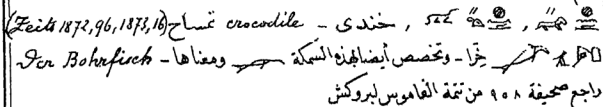 خندى - crocodile تمساح (Zeits 1872, 96, 1873, 16)
خرًا - وتخصص أيضا بهذه السمكة - ومعناها - Der Bohrfisch
راجع صحيفة ٩٥٨ من تتمة القاموس لبروكش